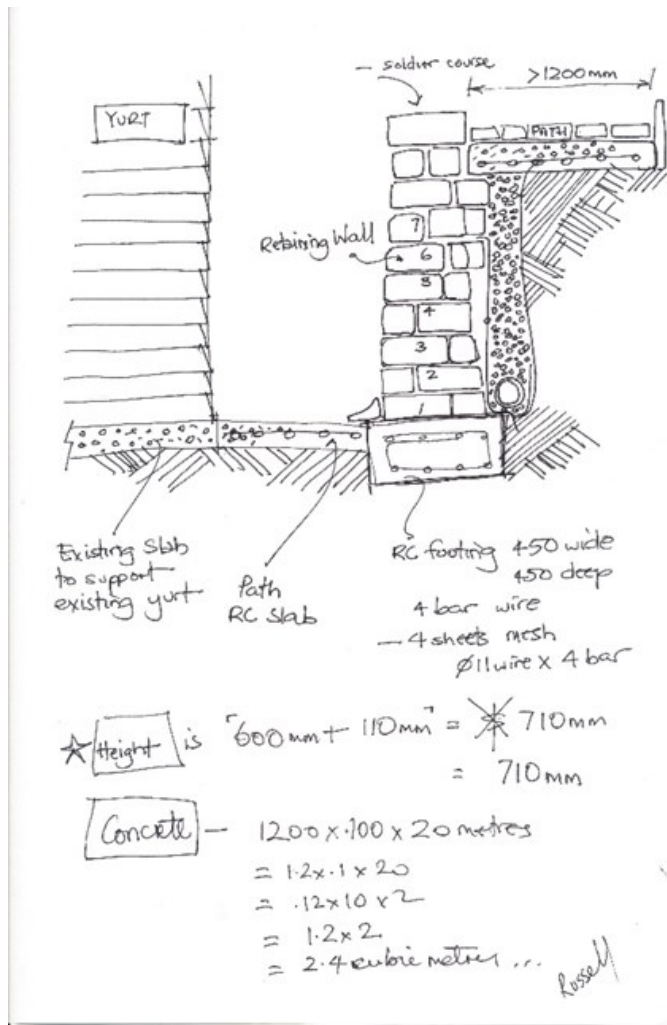 - soldier course
>1200mm
YURT
PATH
Retining Wall
7
6
5
4
3
2
1
Existing Slab
to support
existing yurt
Path
RC Slab
RC footing 450 wide
450 deep
4 bar wire
- 4 sheets mesh
Ø11 wire x 4 bar
☆ Height is "600mm + 110mm" = 710mm
= 710mm
Concrete - 1200 x .100 x 20 metres
= 1.2 x .1 x 20
= .12 x 10 x 2
= 1.2 x 2
= 2.4 cubic metres ...
Rossell